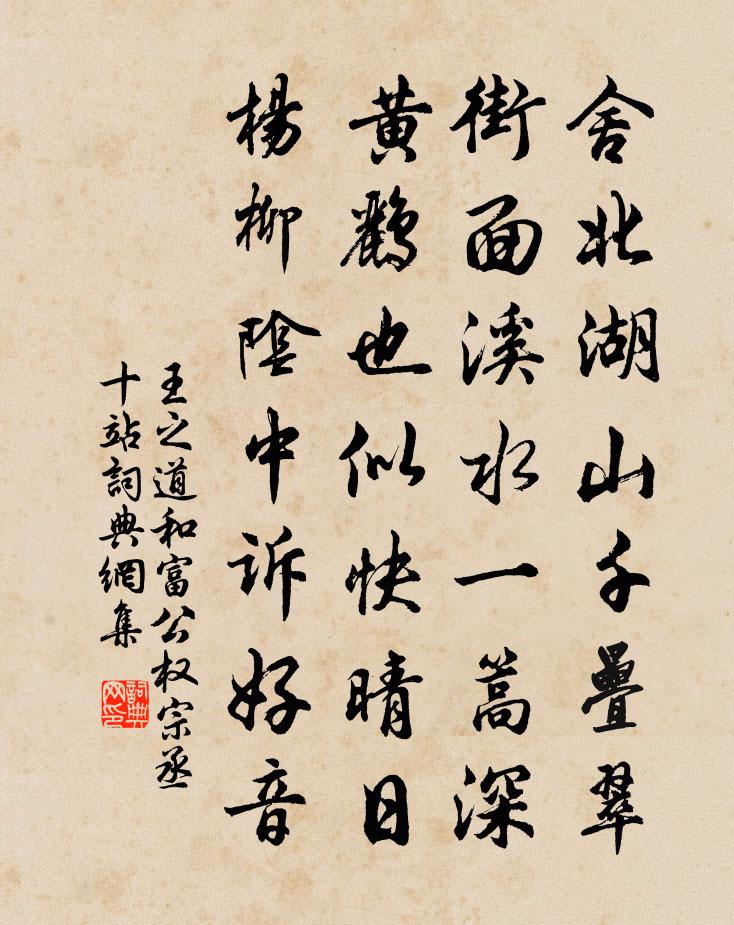 舍北湖山千疊翠
街面溪水一篙深
黄鸝也似快晴日
楊柳陰中訴好音
王之道和富公权宗丞
十站詞典網集
詞典网印